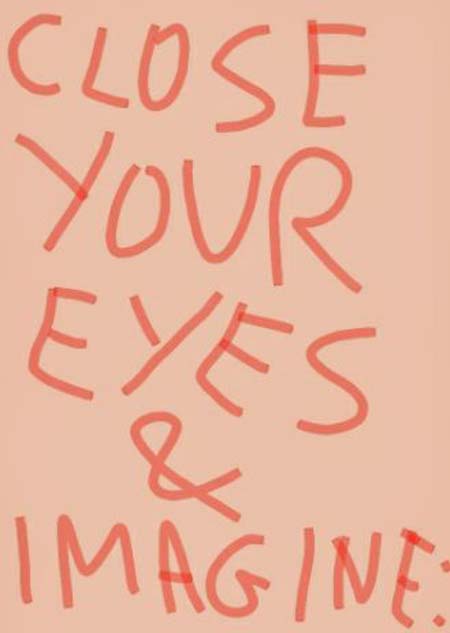 CLOSE
YOUR
EYES
&
IMAGINE: